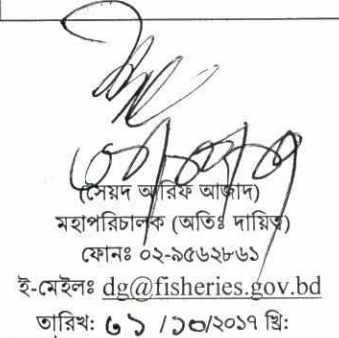 (সৈয়দ আরিফ আজাদ)
মহাপরিচালক (অতিঃ দায়িত্ব)
ফোনঃ ০২-৯৫৬২৮৬১
ই-মেইলঃ dg@fisheries.gov.bd
তারিখ: ৩১ /১০/২০১৭ খ্রি: